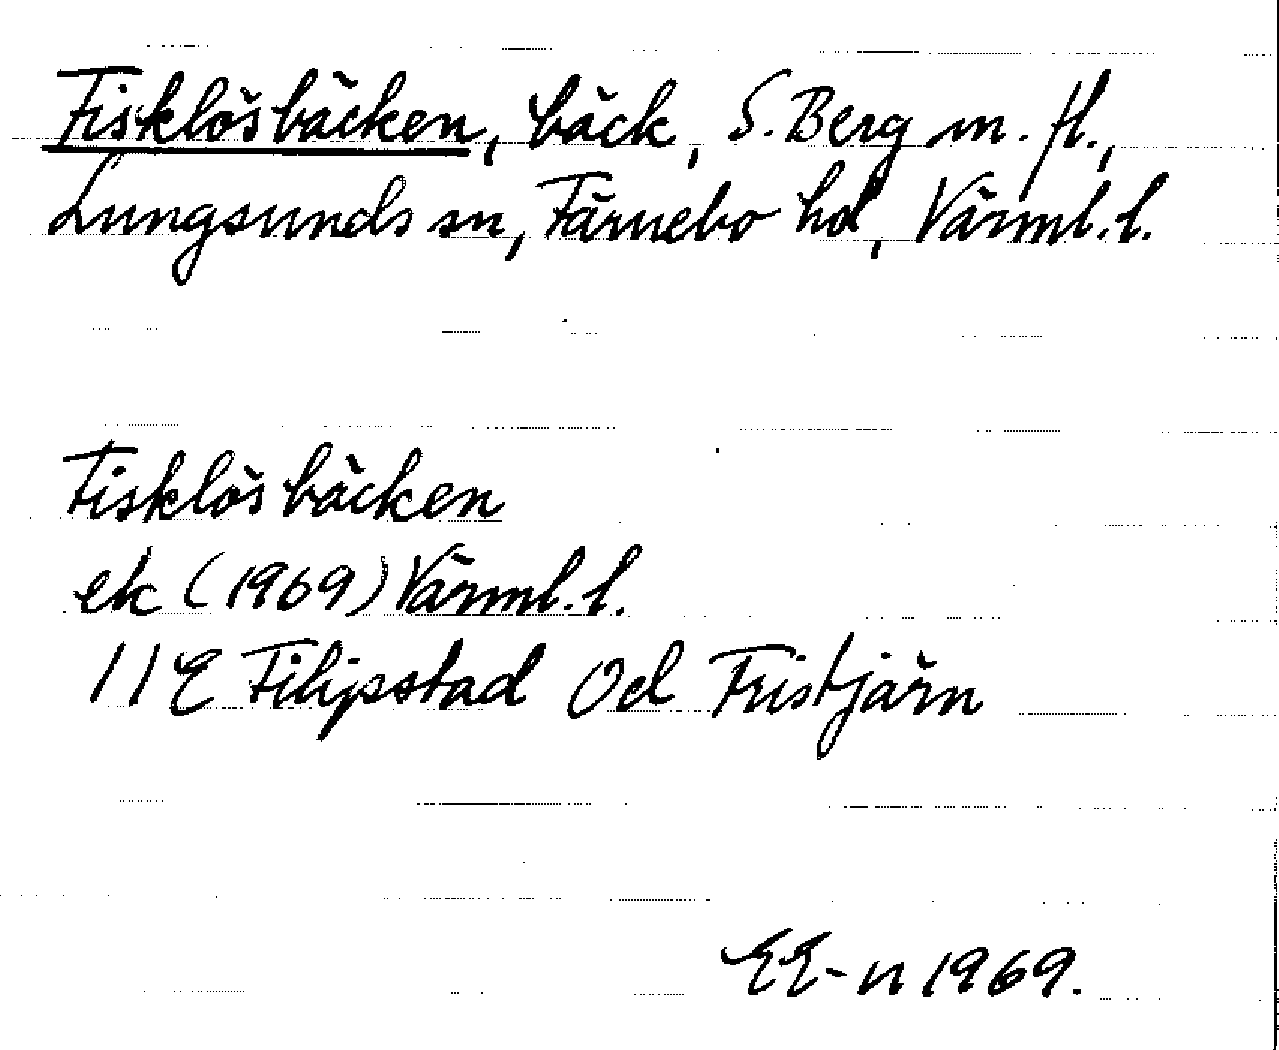 Fisklösbäcken, bäck, S. Berg m. fl.,
Lungsunds sn, Färnebo hd, Värml. l.
Fisklösbäcken
ek (1969) Värml. l.
11E Filipstad Ocd Tristjärn
EE-n 1969.